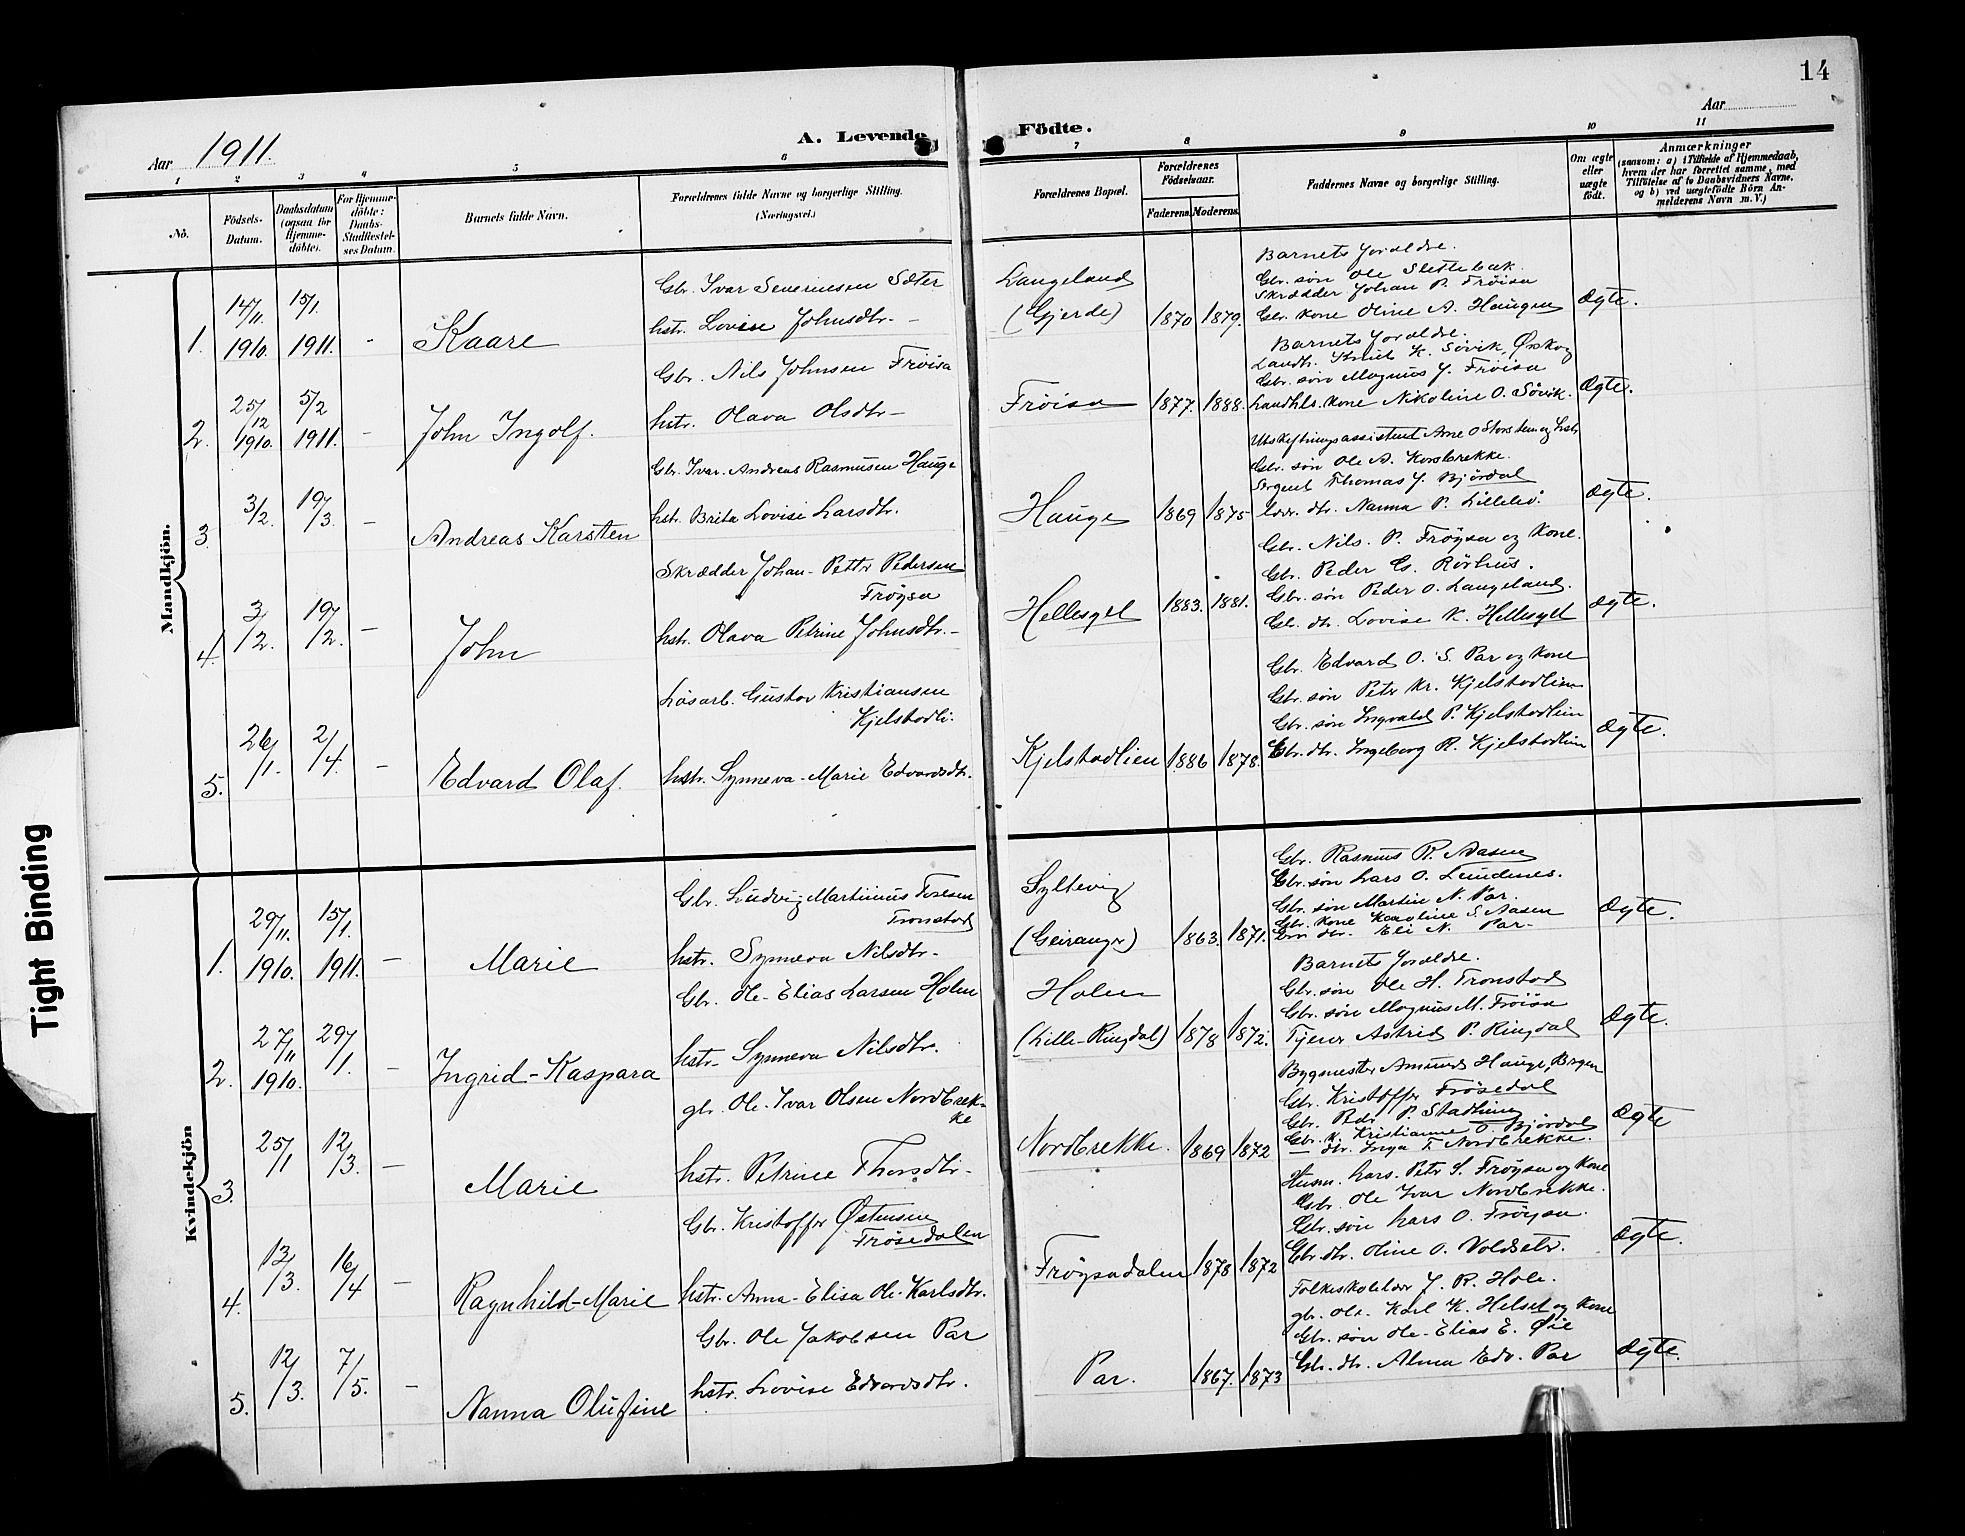 14
Aar 1911.
A. Levende Födte.
Aar
1 2 3 4 5 6 7 8 9 10 11
No.
Födsels-Datum.
Daabsdatum (ogsaa for Hjemme-döbte).
For Hjemme-döbte: Daabs-Stadfæstel-ses Datum.
Barnets fulde Navn.
Forældrenes fulde Navne og borgerlige Stilling. (Næringsvei.)
Forældrenes Bopæl.
Forældrenes Födselsaar.
Faderens. Moderens.
Faddernes Navne og borgerlige Stilling.
Om ægte eller uægte födt.
Anmærkninger
(saasom: a) i Tilfælde af Hjemmedaab, hvem der har forrettet samme, med Tilföielse af to Daabsvidners Navne, og b) ved uægtefödte Börn Anmelderens Navn m. V.)
Mandkjön.
1. 14/11 1910. 15/1 1911. - Kaare
Gbr. Ivar Severinsen Sæter
hstr. Lovise Johnsdtr. -
Langeland
(Gjerde) 1870 1879.
Barnets Foræld​re.
Gbr. søn Ole Slettebak.
Skrædder Johan P. Frøisa
Gbr. kone Oline A. Haugen
Ægte.
2. 25/12 1910. 5/2 1911. - John Ingolf.
Gbr. Nils Johnsen Frøisa
hstr. Olava Olsdtr -
Frøisa 1877. 1888.
Barnets Forældre.
Landh. Knut K. Søvik, Ørskog
Gbr. søn Magnus J. Frøisa
Landhls. kone Nikoline O. Søvik.
Ægte.
3. 3/2. 19/3. - Andreas Karsten
Gbr. Ivar Andreas Rasmusen Hauge
hstr. Brita Lovise Larsdtr.
Hauge 1869 1875
Utskiftningsassistent Arne O Storstein og hstr
Gbr. søn Ole A. Korsbrekke.
Sergent Thomas J. Bjørdal
Lær. dtr. Nanna P. Lillebø.
Ægte.
4. 3/2. 19/2. - John
Skrædder Johan-Petter Pedersen
Frøysa
hstr. Olava Petrine Johnsdtr. -
Hellesylt 1883. 1881.
Gbr. Nils. P. Frøysa og kone.
Gbr. Peder G. Rørhus.
Gbr. søn Peder O. Langeland.
Gbr. dtr. Lovise K. Hellesylt
Ægte.
5. 26/1. 2/4. - Edvard Olaf.
Løsarb. Gustav Kristiansen
Kjelstadli.
hstr. Synneva-Marie Edvardsdtr.
Kjelstadlien 1886 1878.
Gbr. Edvard O. S. Par og kone
Gbr. søn Petr Kr. Kjelstadlien
Gbr. søn Ingvald P. Kjelstadlien
Gbr. dtr. Ingeborg R. Kjelstadlien
Ægte.
Kvindekjön
1. 29/11. 1910. 15/1. 1911. - Marie
Gbr. Ludvig Martinus Toresen
Tronstad
hstr. Synneva Nilsdtr.
Syltevig
(Geiranger) 1863. 1871.
Gbr. Rasmus R. Aasen
Gbr. søn Lars O. Lundenes.
Gbr. søn Martin N. Par.
Gbr. kone Karoline S. Aasen
Gbr. dtr. Eli N. Par-
Ægte.
2. 27/11 1910. 29/1. - Ingrid-Kaspara
Gbr. Ole-Elias Larsen Holen
hstr. Synneva Nilsdtr.
Holen
(Lille-Ringdal) 1878 1872.
Barnets Forældre.
Gbr. søn Ole H. Tronstad
Gbr. søn Magnus M. Frøisa
Tjener Astrid P. Ringdal
Ægte.
3. 25/1 12/3. - Marie
gbr. Ole-Ivar Olsen Nordbrek-
ke
hstr. Petrine Thorsdtr-
Nordbrekke. 1869 1872
Bygmester Amund Hauge, Bergen
Gbr. Kristoffer Frøsedal
Gbr. Pedr P. Stadheim
Gbr. k. Kristianne O. Bjørdal
— dtr. Inga T. Nordbrekke.
Ægte
4. 13/3. 16/4 - Ragnhild-Marie
Gbr. Kristoffer Østensen
Frøsedalen
hstr. Anna-Elisa Ole-Karlsdtr.
Frøysadalen 1878 1872
Husm. Lars. Petr S. Frøysa og kone
Gbr. Ole Ivar Nordbrekke.
Gbr. søn Lars O. Frøysa.
Gbr. dtr. Oline O. Voldsetr.
Ægte.
5. 12/3. 7/5. - Nanna Olufine
Gbr. Ole Jakobsen Par
hstr. Lovise Edvardsdtr.
Par. 1867. 1873
Folkeskolelær J. R. Hole.
gbr. Ole-Karl K. Helset og kone
Gbr. søn Ole-Elias E. Øie
Gbr. dtr. Alma Edv. Par
Ægte.
Tight Binding